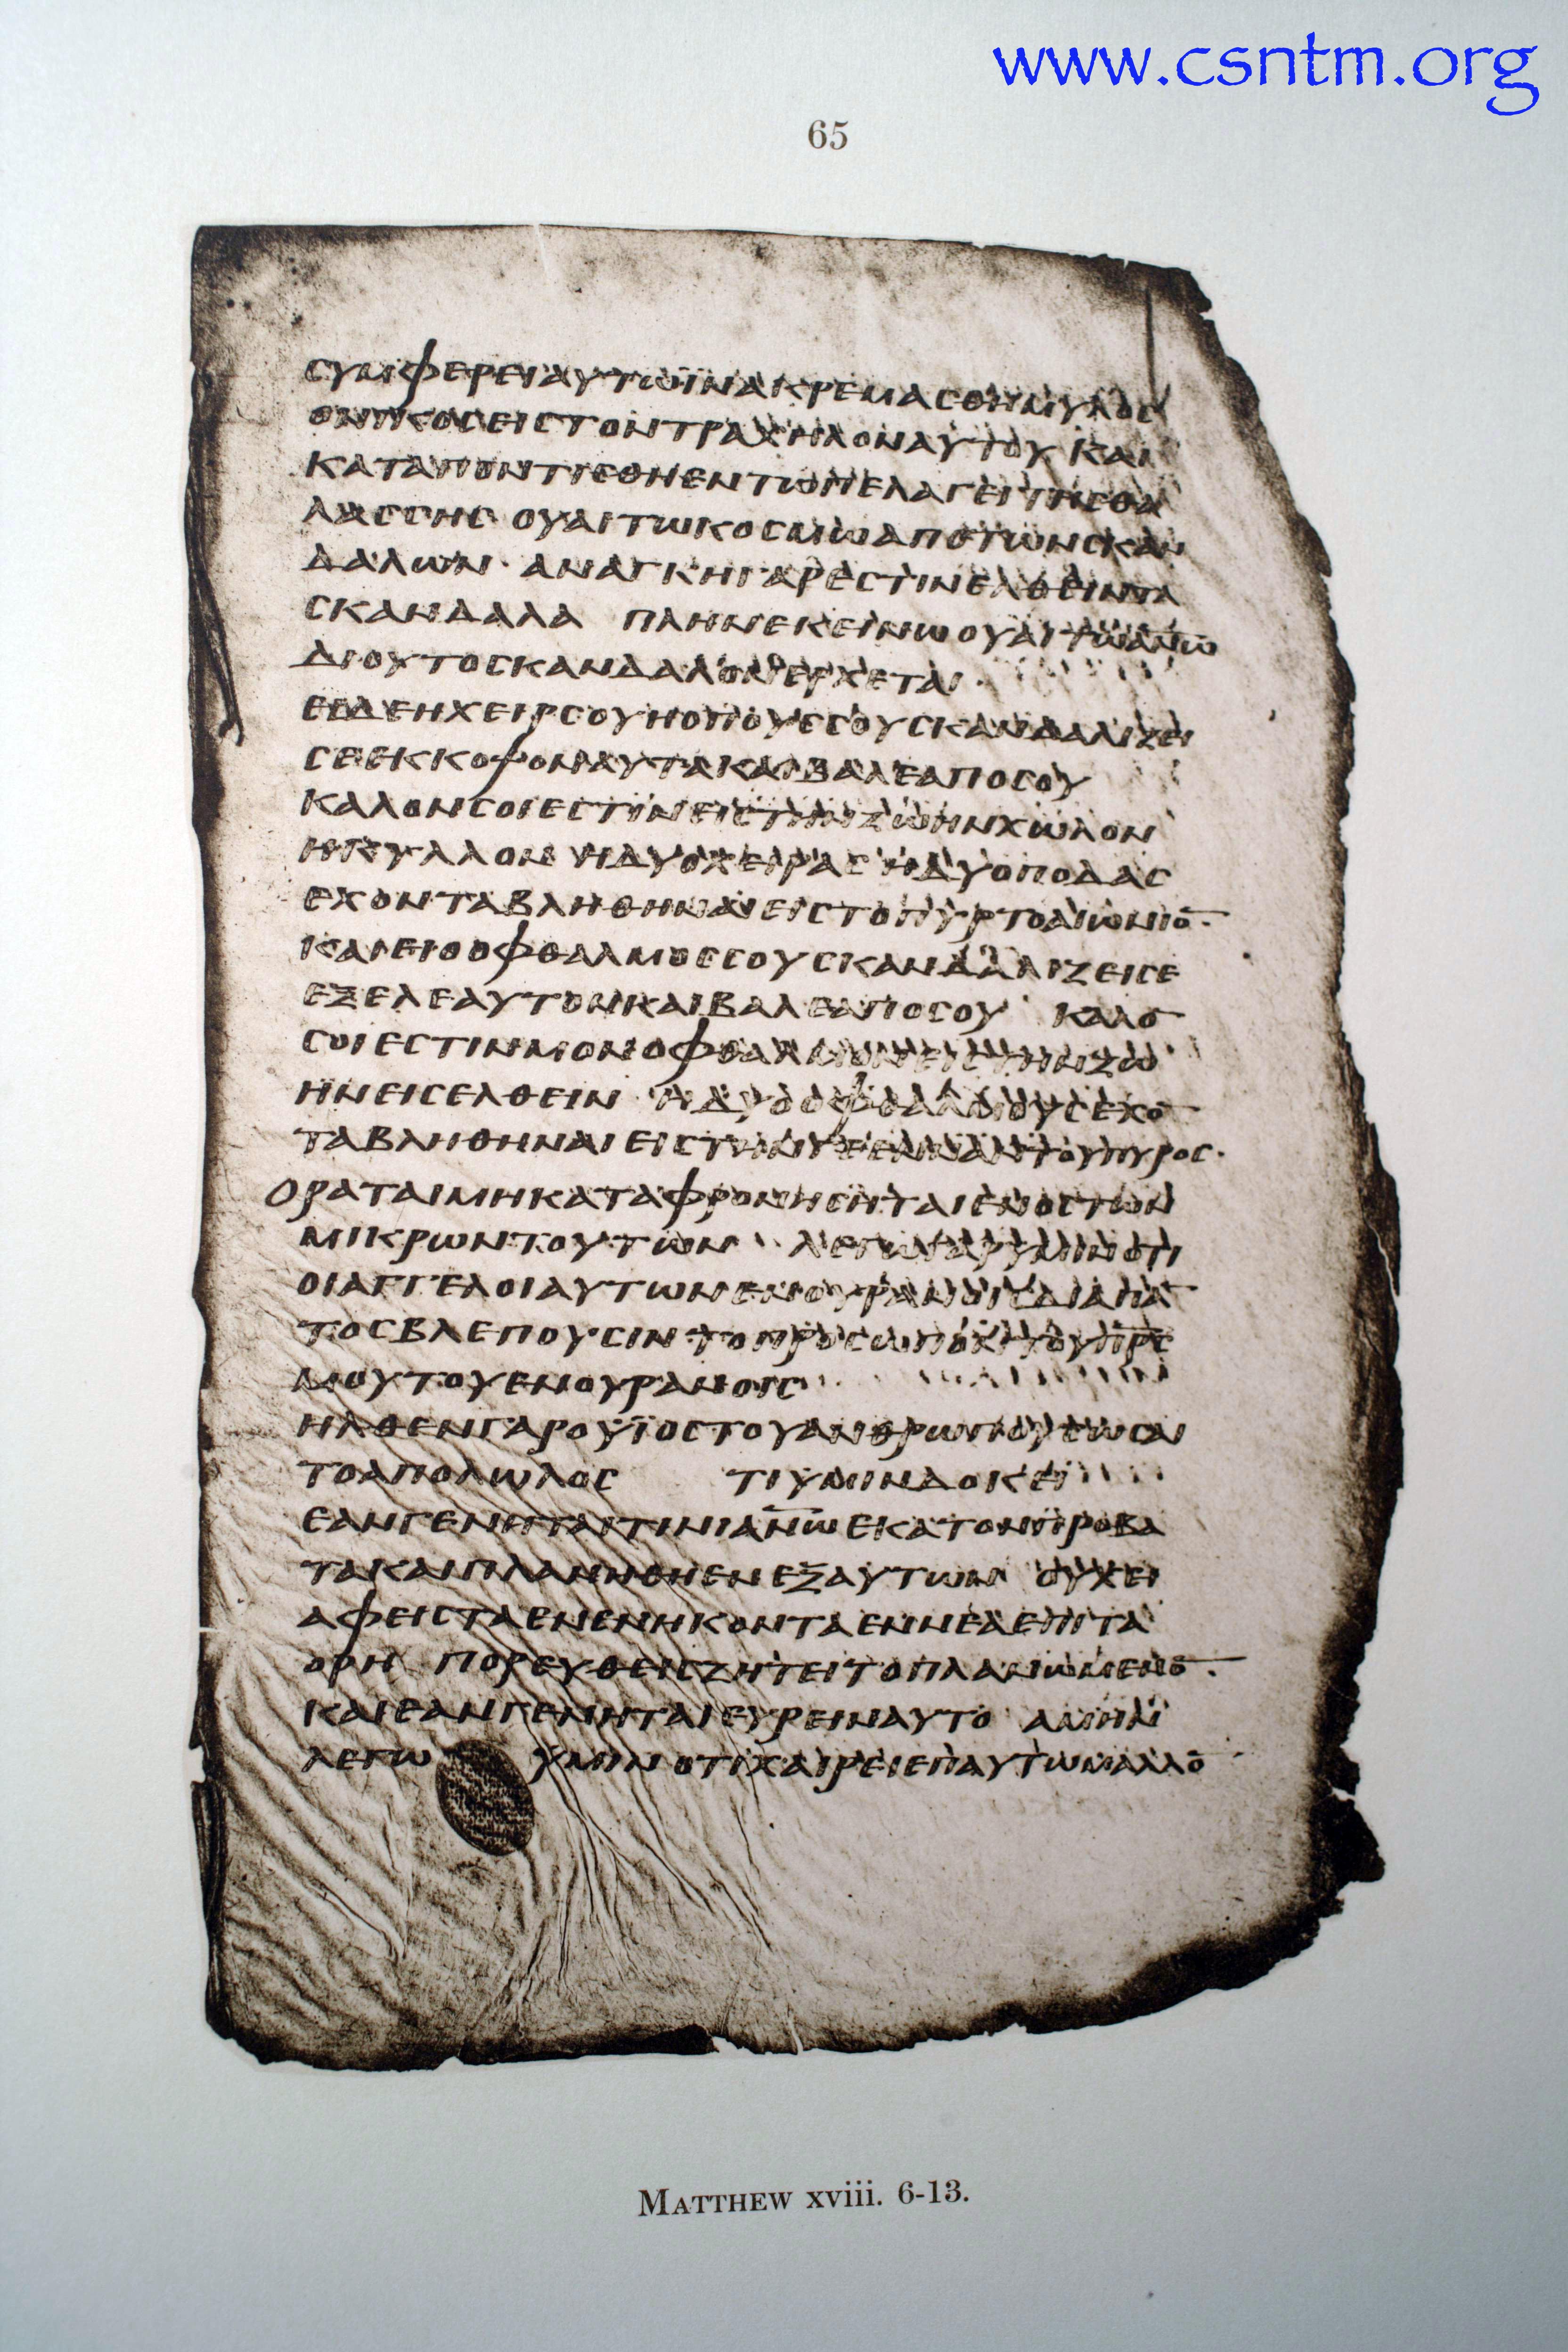 www.csntm.org
65
ϹΥΜΦΕΡΕΙΑΥΤΩΪΝΑΚΡΕΜΑϹΘΗΜΥΛΟϹ
ΟΝΙΚΟϹΕΙϹΤΟΝΤΡΑΧΗΛΟΝΑΥΤΟΥ ΚΑΙ
ΚΑΤΑΠΟΝΤΙϹΘΗΕΝΤΩΠΕΛΑΓΕΙΤΗϹΘΑ
ΛΑϹϹΗϹ ΟΥΑΙΤΩΚΟϹΜΩΑΠΟΤΩΝϹΚΑΝ
ΔΑΛΩΝ · ΑΝΑΓΚΗΓΑΡΕϹΤΙΝΕΛΘΕΙΝΤΑ
ϹΚΑΝΔΑΛΑ ΠΛΗΝΕΚΕΙΝΩΟΥΑΙΤΩΑΝΩ
ΔΙΟΥΤΟϹΚΑΝΔΑΛΟΝΕΡΧΕΤΑΙ ·
ΕΙΔΕΗΧΕΙΡϹΟΥΗΟΠΟΥϹϹΟΥϹΚΑΝΔΑΛΙΖΕΙ
ϹΕΕΚΚΟΨΟΝΑΥΤΑΚΑΙΒΑΛΕΑΠΟϹΟΥ
ΚΑΛΟΝϹΟΙΕϹΤΙΝΕΙϹΤΗΝΖΩΗΝΧΩΛΟΝ
ΗΚΥΛΛΟΝ ΗΔΥΟΧΕΙΡΑϹ ΗΔΥΟΠΟΔΑϹ
ΕΧΟΝΤΑΒΛΗΘΗΝΑΙΕΙϹΤΟΠΥΡΤΟΑΙΩΝΙΟ̅ ·
ΚΑΙΕΙΟΟΦΘΑΛΜΟϹϹΟΥϹΚΑΝΔΑΛΙΖΕΙϹΕ
ΕΞΕΛΕΑΥΤΟΝΚΑΙΒΑΛΕΑΠΟϹΟΥ ΚΑΛΟ̅
ϹΟΙΕϹΤΙΝΜΟΝΟΦΘΑΛΜΟΝΕΙϹΤΗΝΖΩ
ΗΝΕΙϹΕΛΘΕΙΝ ΗΔΥΟΟΦΘΑΛΜΟΥϹΕΧΟ̅
ΤΑΒΛΗΘΗΝΑΙΕΙϹΤΗΝΓΕΕΝΝΑΝΤΟΥΠΥΡΟϹ ·
ΟΡΑΤΑΙΜΗΚΑΤΑΦΡΟΝΗϹΗΤΑΙΕΝΟϹΤΩΝ
ΜΙΚΡΩΝΤΟΥΤΩΝ · ΛΕΓΩΓΑΡΥΜΙΝΟΤΙ
ΟΙΑΓΓΕΛΟΙΑΥΤΩΝΕΝΟΥΡΑΝΟΙϹΔΙΑΠΑ̅
ΤΟϹΒΛΕΠΟΥϹΙΝΤΟΠΡΟϹΩΠΟ̅ΤΟΥΠ̅Ρ̅Ϲ̅
ΜΟΥΤΟΥΕΝΟΥΡΑΝΟΙϹ ·
ΗΛΘΕΝΓΑΡΟΥΪΟϹΤΟΥΑΝΘΡΩΠΟΥϹΩϹΑΙ
ΤΟΑΠΟΛΩΛΟϹ ΤΙΥΜΙΝΔΟΚΕΙ
ΕΑΝΓΕΝΗΤΑΙΤΙΝΙΑ̅Ν̅Ω̅ΕΚΑΤΟΝΠΡΟΒΑ
ΤΑΚΑΙΠΛΑΝΗΘΗΕΝΕΞΑΥΤΩΝ ΟΥΧΕΙ
ΑΦΕΙϹΤΑΕΝΕΝΗΚΟΝΤΑΕΝΝΕΑΕΠΙΤΑ
ΟΡΗ ΠΟΡΕΥΘΕΙϹΖΗΤΕΙΤΟΠΛΑΝΩΜΕΝΟ̅ ·
ΚΑΙΕΑΝΓΕΝΗΤΑΙΕΥΡΕΙΝΑΥΤΟ ΑΜΗΝ
ΛΕΓΩ ΥΜΙΝΟΤΙΧΑΙΡΕΙΕΠΑΥΤΩΜΑΛΛΟ̅
MATTHEW xviii. 6-13.